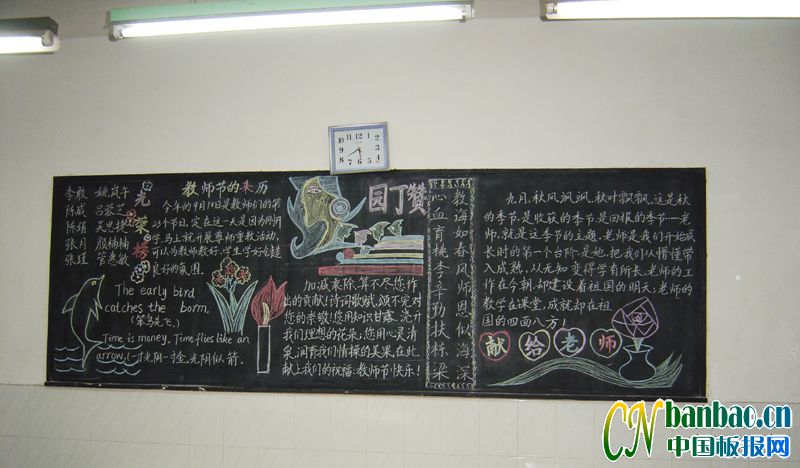 李敢 姚岚午
陈威 吕蓉芝
陈娟 吴思捷
张月 颜楠楠
张瑾 管惠敏
光荣榜
教师节的来历
今年的9月10日是教师们的第
23个节日。定在这一天是因为刚开
学,马上就开展尊师重教活动,
可以为教师教好、学生学好创造
良好的氛围。
The early bird
catches the borm.
(笨鸟先飞)
Time is money. Time flies like an
arrow. (一寸光阴一寸金,光阴似箭。
园丁赞
加减乘除,算不尽您作
出的贡献!诗词歌赋,颂不完对
您的崇敬!您用知识甘露,浇开
我们理想的花朵;您用心灵清
泉,润育我们情操的美果,在此,
献上我们的祝福:教师节快乐!
教海如春风师恩似海深
心血育桃李辛勤扶栋梁
九月,秋风飒飒,秋叶飘飘,这是秋
的季节,是收获的季节,是回报的季节……老
师,就是这季节的主题,老师是我们开始成
长时的第一个台阶,是她,把我们从懵懂带
入成熟,从无知变得学有所长,老师的工
作在今朝,却建设着祖国的明天;老师的
教学在课堂,成就却在祖
国的四面八方!
献给老师
CNbanbao.cn
中国板报网